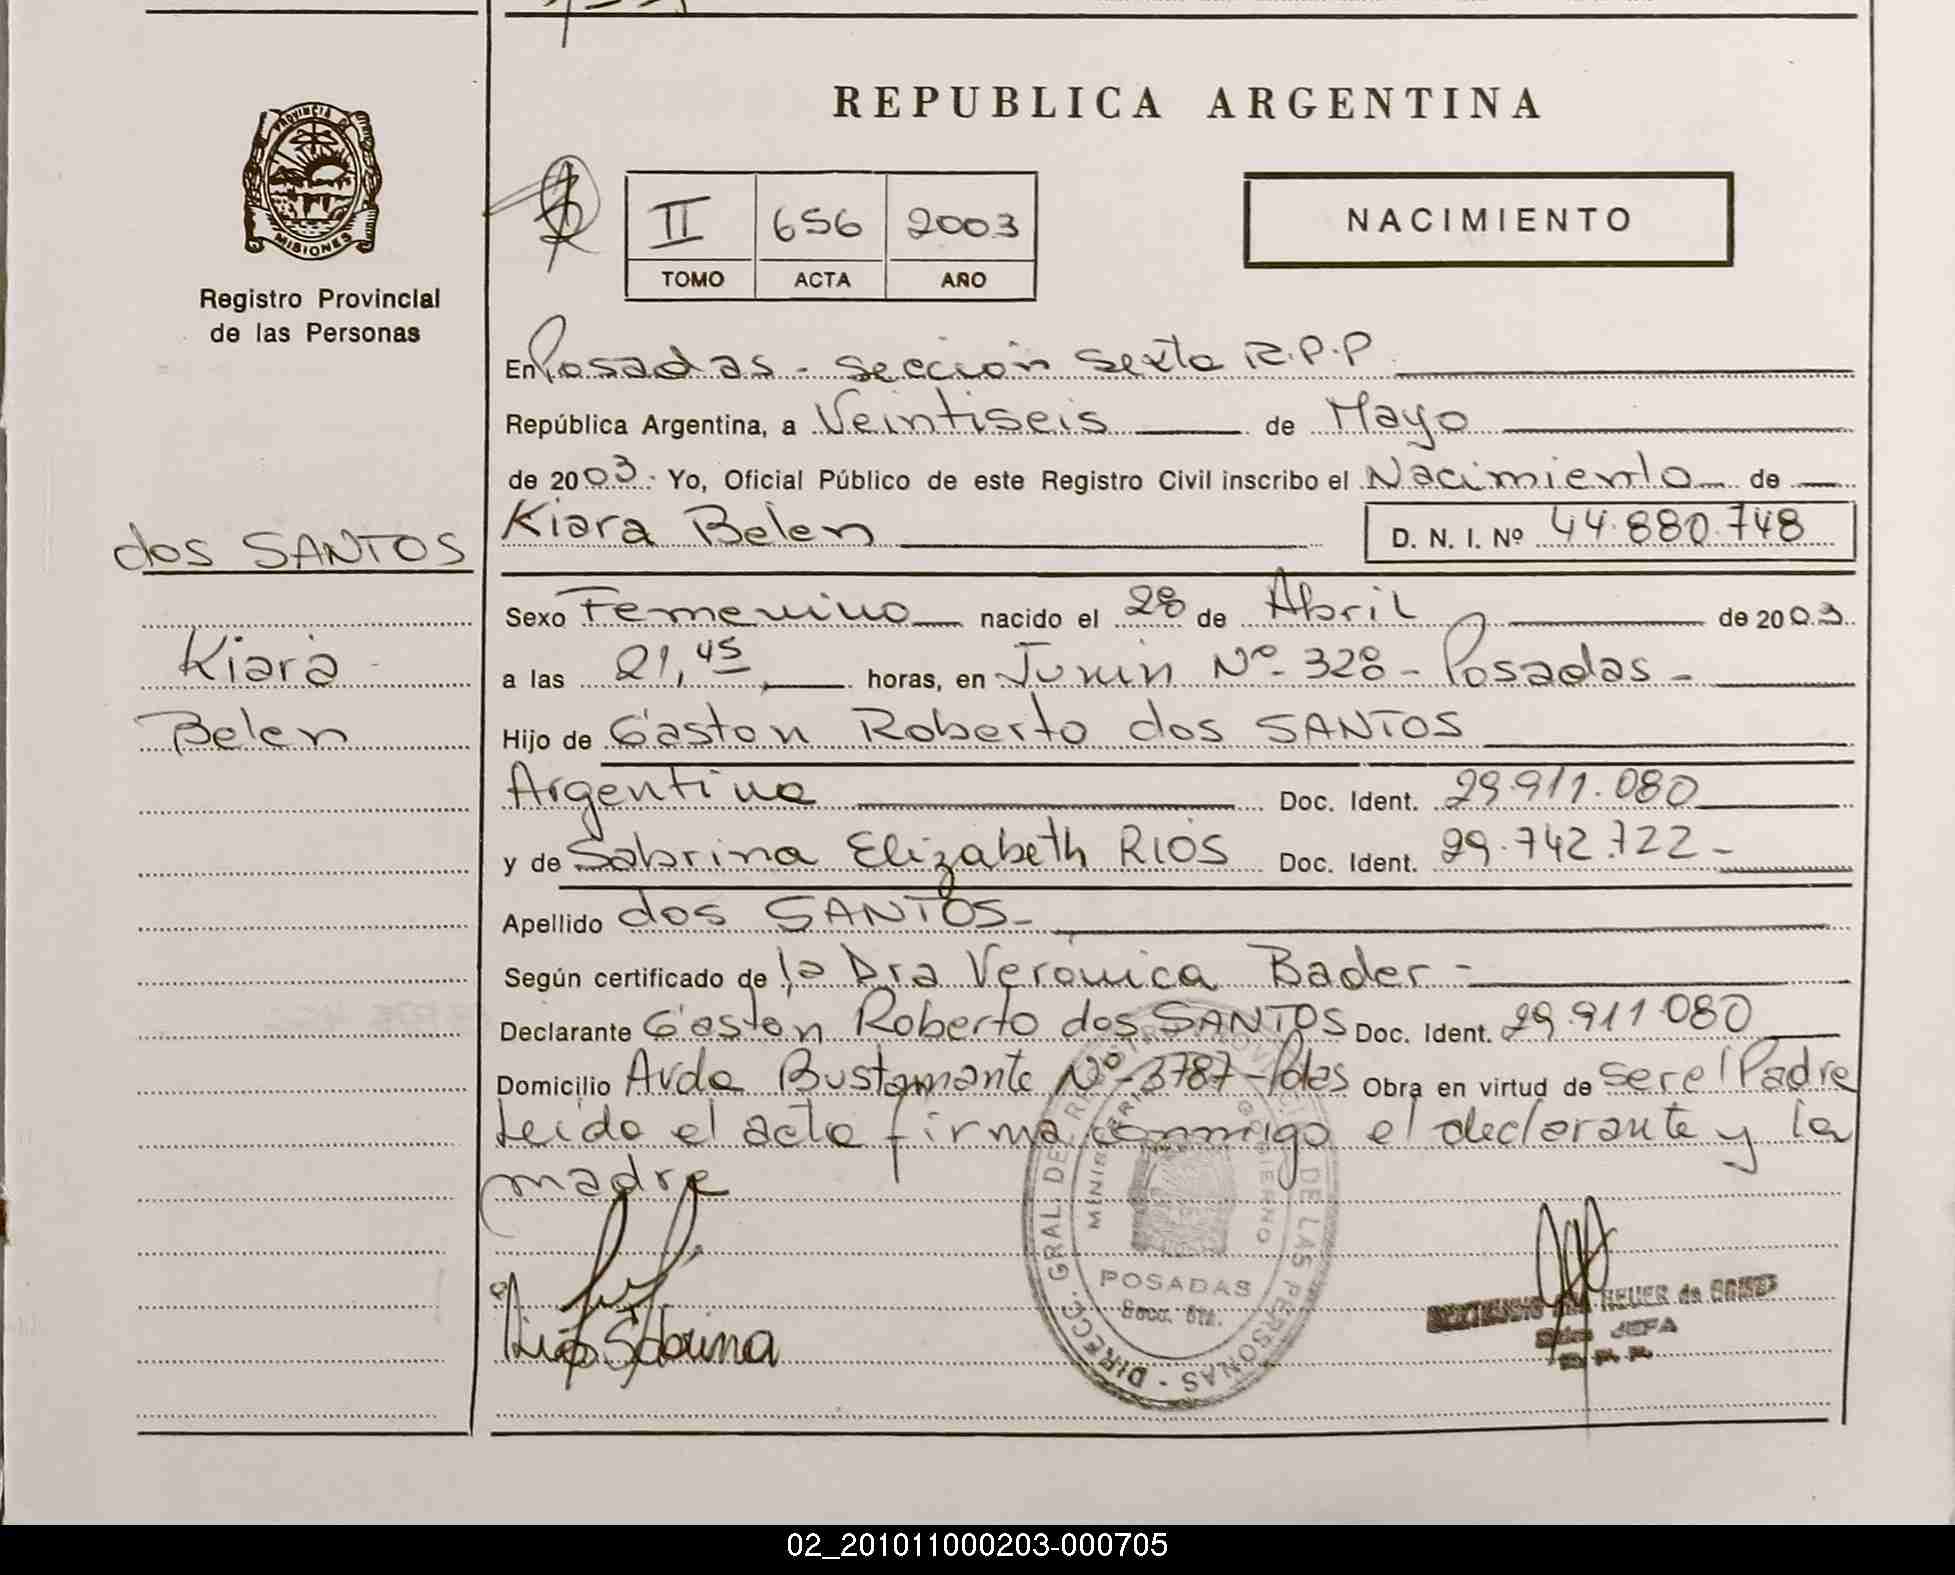 REPUBLICA ARGENTINA
PROVINCIA DE
MISIONES
Registro Provincial
de las Personas
II 656 2003
TOMO ACTA AÑO
NACIMIENTO
En Posadas - Sección Sexta R.P.P
República Argentina, a Veintiseis de Mayo
de 2003. Yo, Oficial Público de este Registro Civil inscribo el Nacimiento de
Kiara Belen D. N. I. Nº 44.880.748
dos SANTOS
Kiara
Belen
Sexo Femenino nacido el 28 de Abril de 2003.
a las 21,45 horas, en Junin Nº 328 - Posadas -
Hijo de Gaston Roberto dos SANTOS
Argentino Doc. Ident. 29.911.080
y de Sabrina Elizabeth RIOS Doc. Ident. 29.742.722 -
Apellido dos SANTOS -
Según certificado de la Dra Veronica Bader -
Declarante Gaston Roberto dos SANTOS Doc. Ident. 29.911.080
Domicilio Avda Bustamante Nº 3787 - Pdas Obra en virtud de ser el Padre
Leida el acta firma conmigo el declarante y la
madre
DIRECC. GRAL. DE PROVINCIAL DE LAS PERSONAS -
MINISTERIO GOBIERNO
POSADAS
Secc. 6ta.
Rios Sabrina
HEUER de
JEFA
R. P. P.
02_201011000203-000705